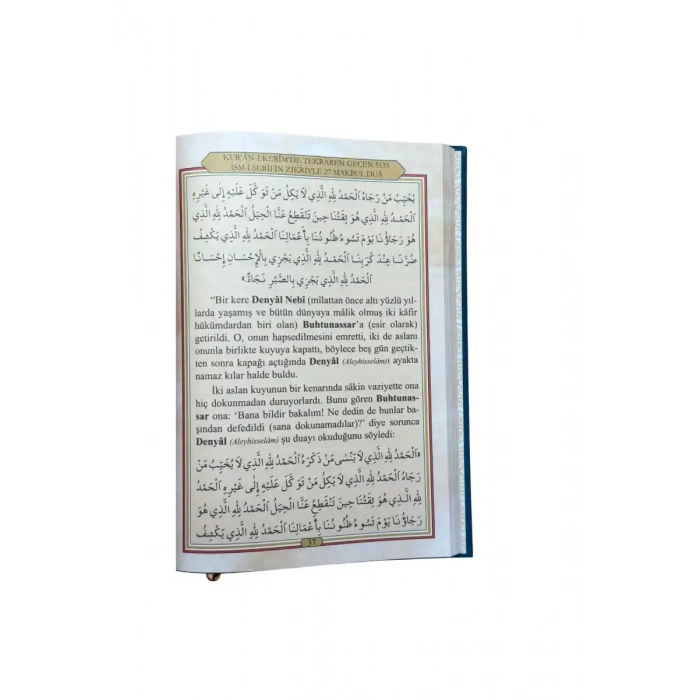 KUR'ÂN-I KERÎM'DE TEKRAREN GEÇEN 5135
İSM-İ ŞERÎFİN ZİKRİYLE 27 MAKBUL DUÂ
يُخَيِّبُ مَنْ رَجَاهُ اَلْحَمْدُ لِلّٰهِ الَّذِي لَا يَكِلُ مَنْ تَوَكَّلَ عَلَيْهِ إِلَى غَيْرِهِ
اَلْحَمْدُ لِلّٰهِ الَّذِي هُوَ ثِقَتُنَا حِينَ تَنْقَطِعُ عَنَّا الْحِيَلُ اَلْحَمْدُ لِلّٰهِ الَّذِي
هُوَ رَجَاؤُنَا يَوْمَ تَسُوءُ ظُنُونُنَا بِأَعْمَالِنَا اَلْحَمْدُ لِلّٰهِ الَّذِي يَكْشِفُ
ضُرَّنَا عِنْدَ كُرَبِنَا اَلْحَمْدُ لِلّٰهِ الَّذِي يَجْزِي بِالْإِحْسَانِ إِحْسَانًا
اَلْحَمْدُ لِلّٰهِ الَّذِي يَجْزِي بِالصَّبْرِ نَجَاةً.»
"Bir kere Denyâl Nebî (mîlattan önce altı yüzlü yıl-
larda yaşamış ve bütün dünyaya mâlik olmuş iki kâfir
hükümdardan biri olan) Buhtunassar'a (esir olarak)
getirildi. O, onun hapsedilmesini emretti, iki de aslanı
onunla birlikte kuyuya kapattı, böylece beş gün geçtik-
ten sonra kapağı açtığında Denyâl (Aleyhisselâm)ı ayakta
namaz kılar halde buldu.
İki aslan kuyunun bir kenarında sâkin vaziyette ona
hiç dokunmadan duruyorlardı. Bunu gören Buhtunas-
sar ona: 'Bana bildir bakalım! Ne dedin de bunlar ba-
şından defedildi (sana dokunamadılar)?' diye sorunca
Denyâl (Aleyhisselâm) şu duayı okuduğunu söyledi:
«اَلْحَمْدُ لِلّٰهِ الَّذِي لَا يَنْسَى مَنْ ذَكَرَهُ اَلْحَمْدُ لِلّٰهِ الَّذِي لَا يُخَيِّبُ مَنْ
رَجَاهُ اَلْحَمْدُ لِلّٰهِ الَّذِي لَا يَكِلُ مَنْ تَوَكَّلَ عَلَيْهِ إِلَى غَيْرِهِ اَلْحَمْدُ
لِلّٰهِ الَّذِي هُوَ ثِقَتُنَا حِينَ تَنْقَطِعُ عَنَّا الْحِيَلُ اَلْحَمْدُ لِلّٰهِ الَّذِي هُوَ
رَجَاؤُنَا يَوْمَ تَسُوءُ ظُنُونُنَا بِأَعْمَالِنَا اَلْحَمْدُ لِلّٰهِ الَّذِي يَكْشِفُ
37